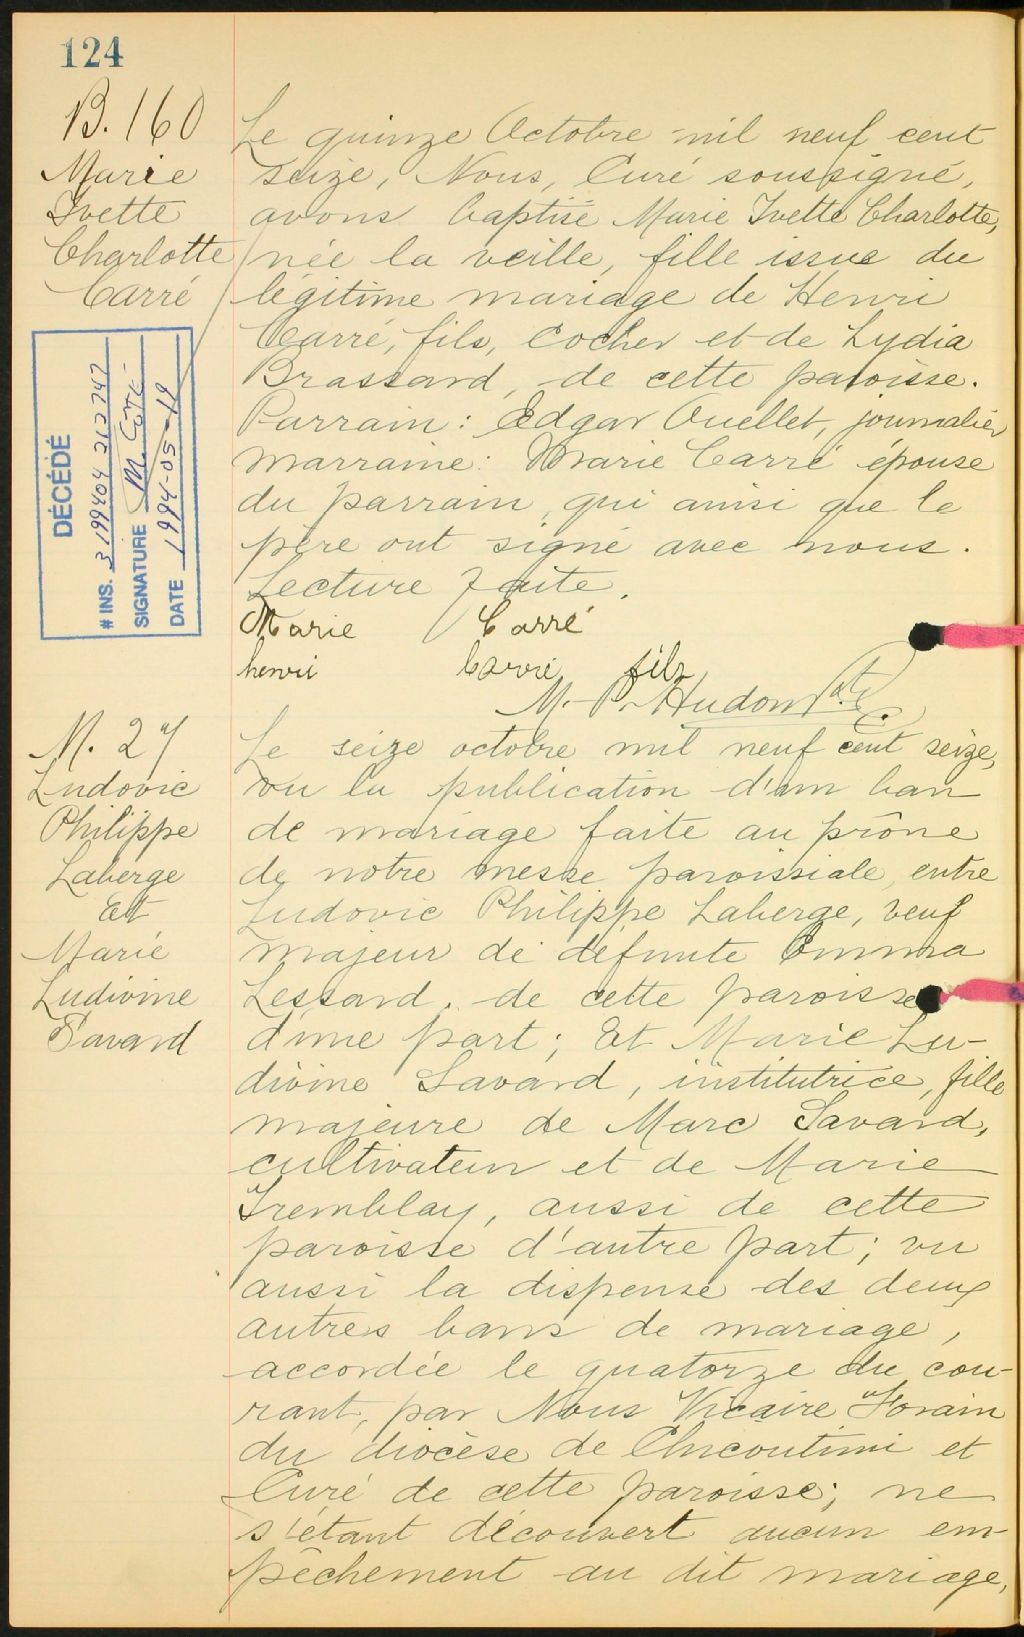 124
B. 160
Marie
Ivette
Charlotte
Carré
DÉCÉDÉ
# INS. 3 199404 212747
SIGNATURE M. Côté
DATE 1994-05-19
Le quinze Octobre mil neuf cent
seize, Nous, Curé soussigné,
avons baptisé Marie Ivette Charlotte,
née la veille, fille issue du
légitime mariage de Henri
Carré, fils, cocher et de Lydia
Brassard, de cette paroisse.
Parrain: Edgar Ouellet, journalier
marraine: Marie Carré épouse
du parrain, qui ainsi que le
père ont signé avec nous.
Lecture faite.
Marie Carré
henri Carré fils
M. P. Hudon Ptre
M. 27
Ludovic
Philippe
Laberge
Et
Marie
Ludivine
Savard
Le seize octobre mil neuf cent seize,
vu la publication d'un ban
de mariage faite au prône
de notre messe paroissiale, entre
Ludovic Philippe Laberge, veuf
majeur de défunte Emma
Lessard, de cette paroisse
d'une part; Et Marie Lu-
divine Savard, institutrice, fille
majeure de Marc Savard,
cultivateur et de Marie
Tremblay, aussi de cette
paroisse d'autre part; vu
aussi la dispense des deux
autres bans de mariage,
accordée le quatorze du cou-
rant, par Nous Vicaire Forain
du diocèse de Chicoutimi et
Curé de cette paroisse; ne
s'étant découvert aucun em-
pêchement au dit mariage,